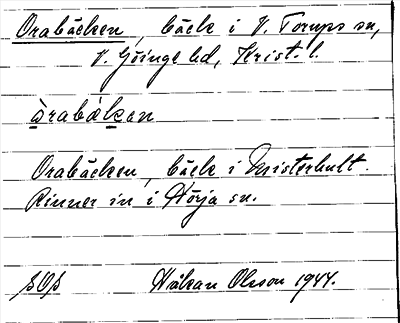 Orabäcken, bäck i V. Torups sn,
V. Göinge hd, Krist. l.
òrabäken
Orabäcken, bäck i Misterhult.
Rinner in i Hörja sn.
sOs Håkan Olsson 1944.